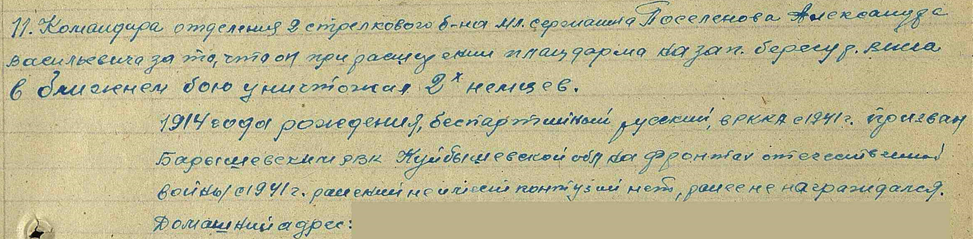 11. Командира отделения 2 стрелкового б-на мл. сержанта Поселенова Александра
Васильевича за то, что он при расширении плацдарма на зап. берегу р. Висла
в ближнем бою уничтожил 2х немцев.
1914 года рождения, беспартийный, русский, в РККА с 1941 г. призван
Барышевским РВК Куйбышевской обл на фронтах отечественной
войны с 1941 г. ранений не имеет контузий нет, ранее не награждался.
Домашний адрес: